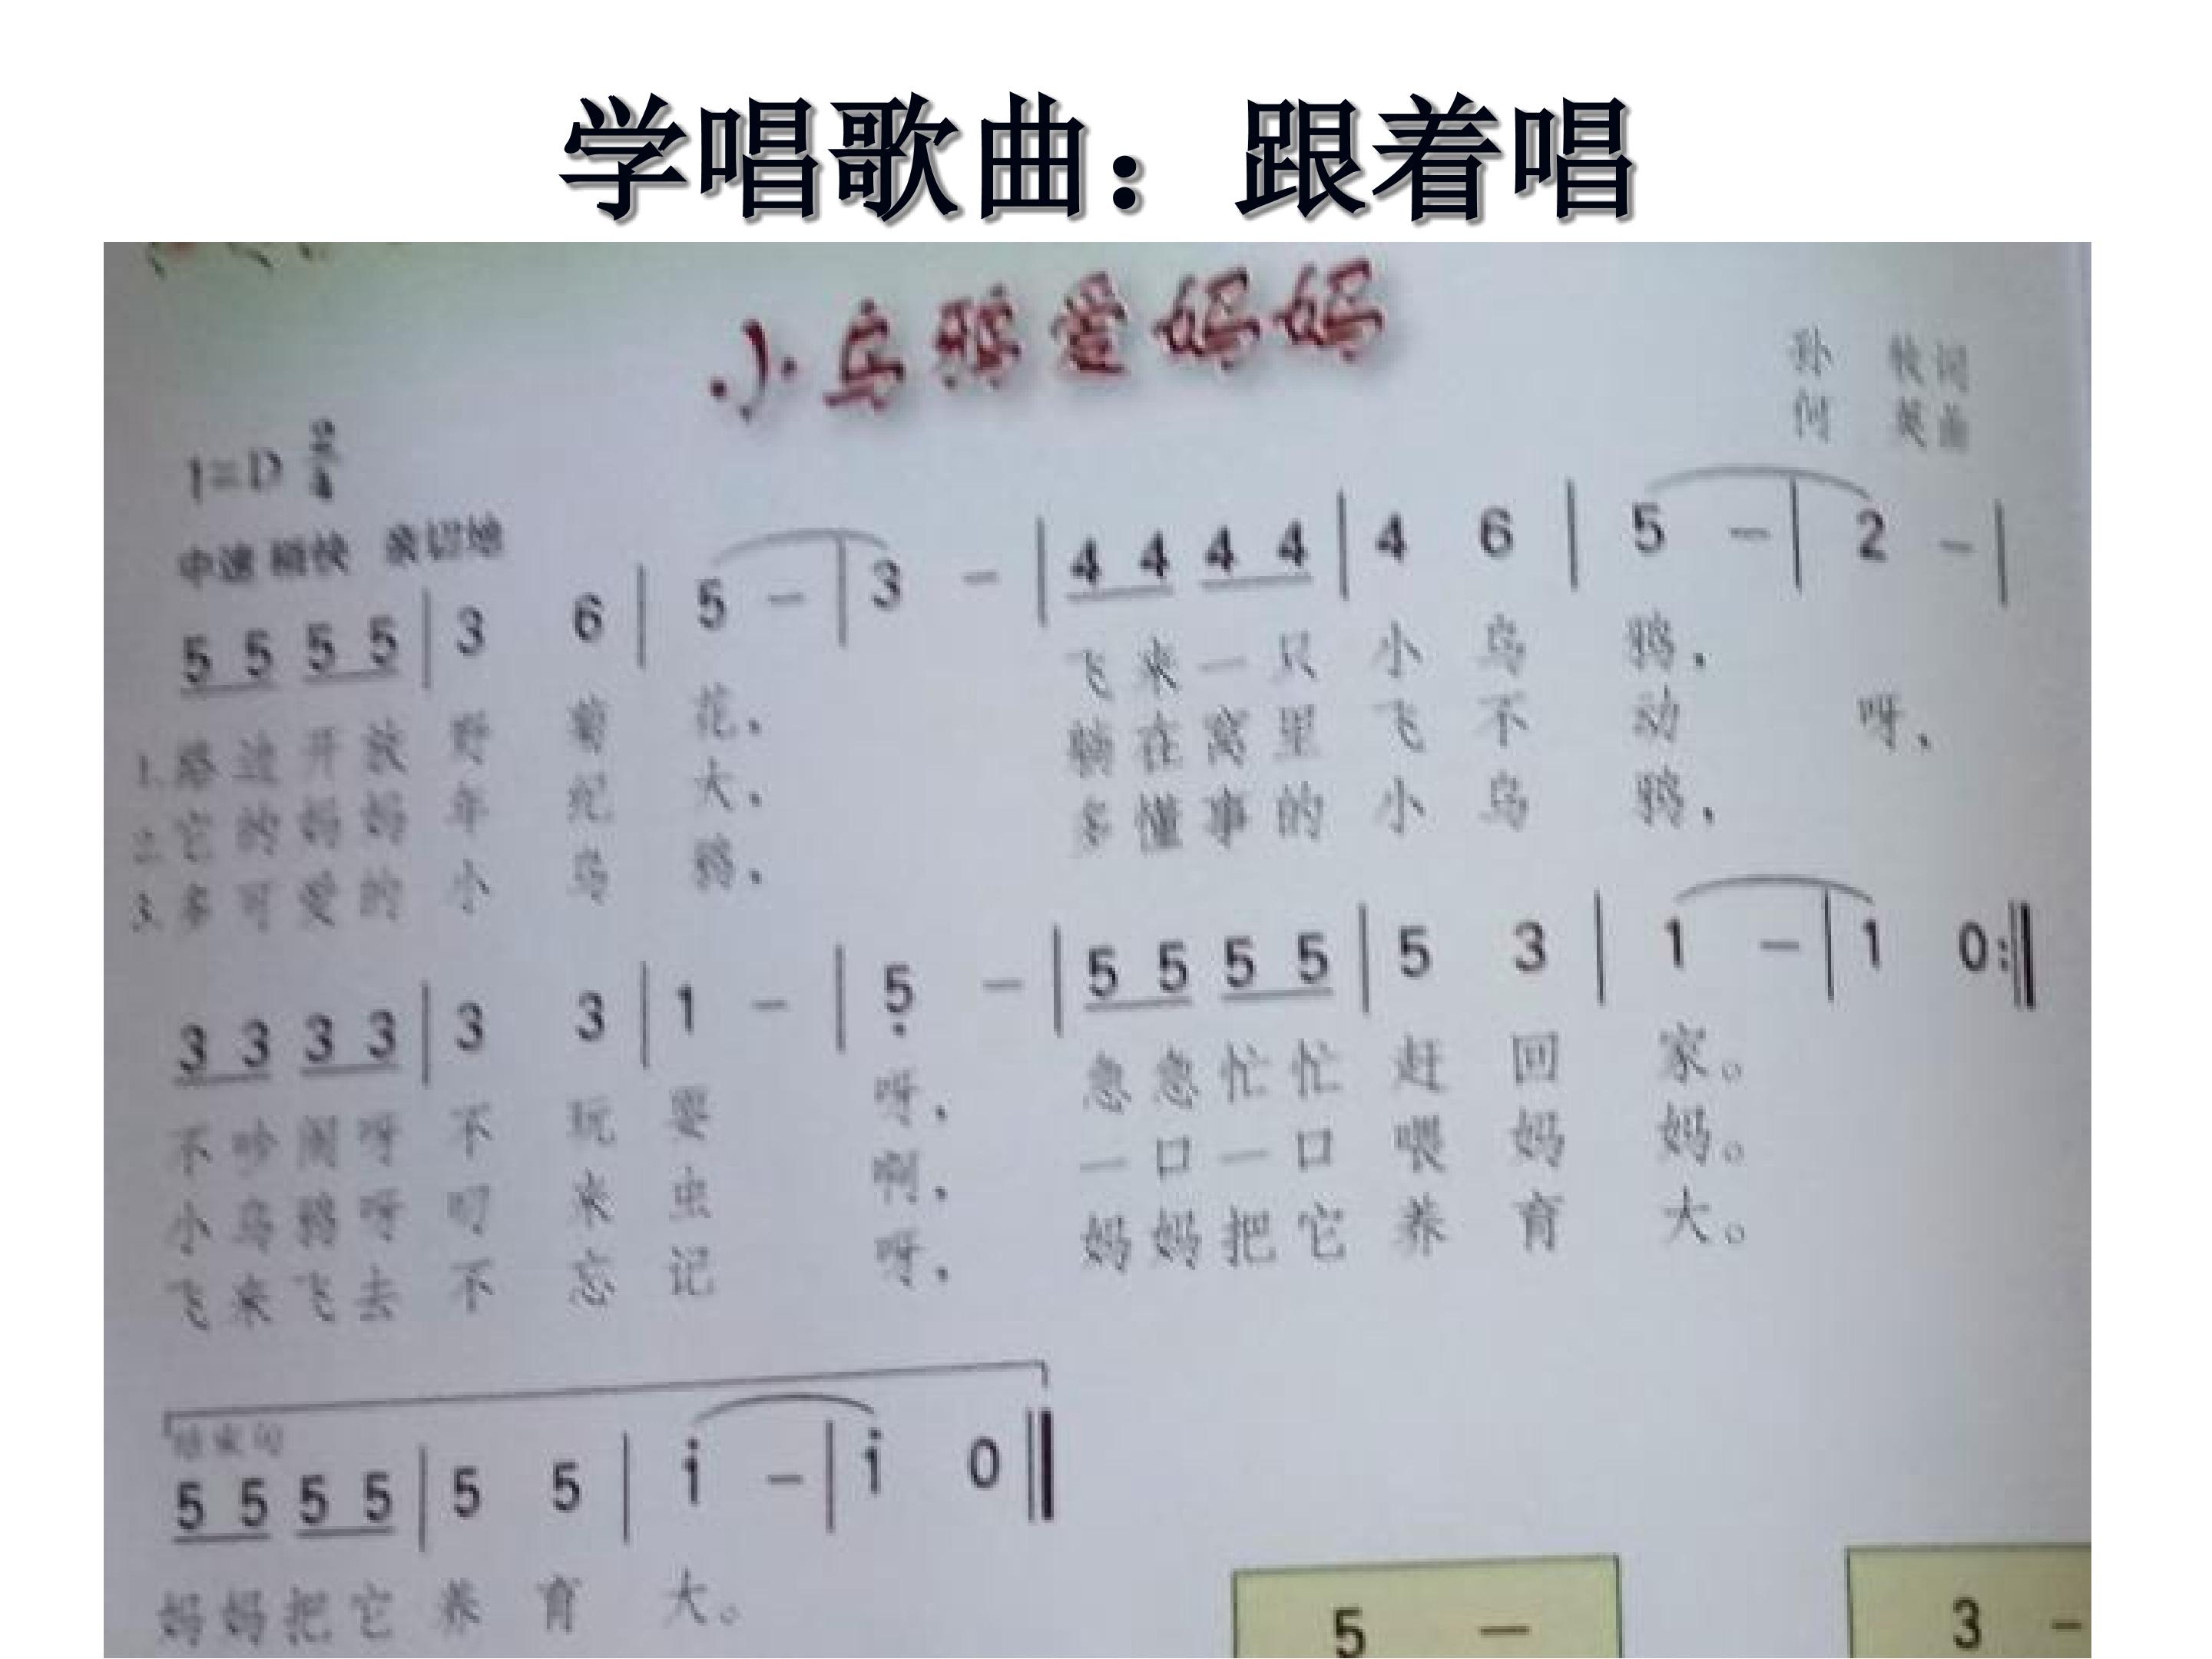 学唱歌曲：跟着唱
小乌鸦爱妈妈
孙 牧词
何 英曲
1=D 2/4
中速 稍快 亲切地
5 5 5 5 | 3 6 | 5 - | 3 - | 4 4 4 4 | 4 6 | 5 - | 2 - |
1. 路边开放野菊花， 飞来一只小乌鸦，
2. 它的妈妈年纪大， 躺在窝里飞不动呀，
3. 多可爱的小乌鸦， 多懂事的小乌鸦，
3 3 3 3 | 3 3 | 1 - | 5̣ - | 5 5 5 5 | 5 3 | 1 - | 1 0 :‖
不吵闹呀不玩耍呀， 急急忙忙赶回家。
小乌鸦呀叼来虫啊， 一口一口喂妈妈。
飞来飞去不忘记呀， 妈妈把它养育大。
结束句
5 5 5 5 | 5 5 | i - | i 0 ‖
妈妈把它养育大。
5 -
3 -